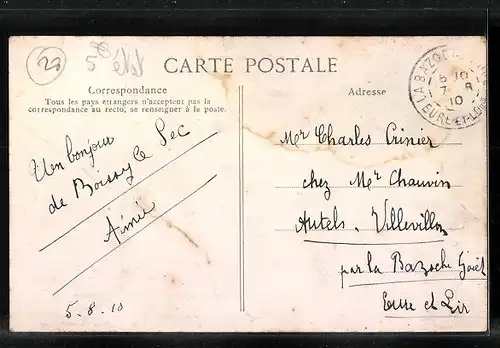 28
5
CARTE POSTALE
Correspondance
Tous les pays étrangers n'acceptent pas la
correspondance au recto, se renseigner à la poste.
Un bonjour
de Boissy le Sec
Aimée
5.8.10
Adresse
LA BAZOCHE
6 10
7 - 8
10
EURE-ET-LOIR
Mr Charles Crinier
chez Mr Chauvin
Autels. Villevillon
par la Bazoche Goüet
Eure et Loir